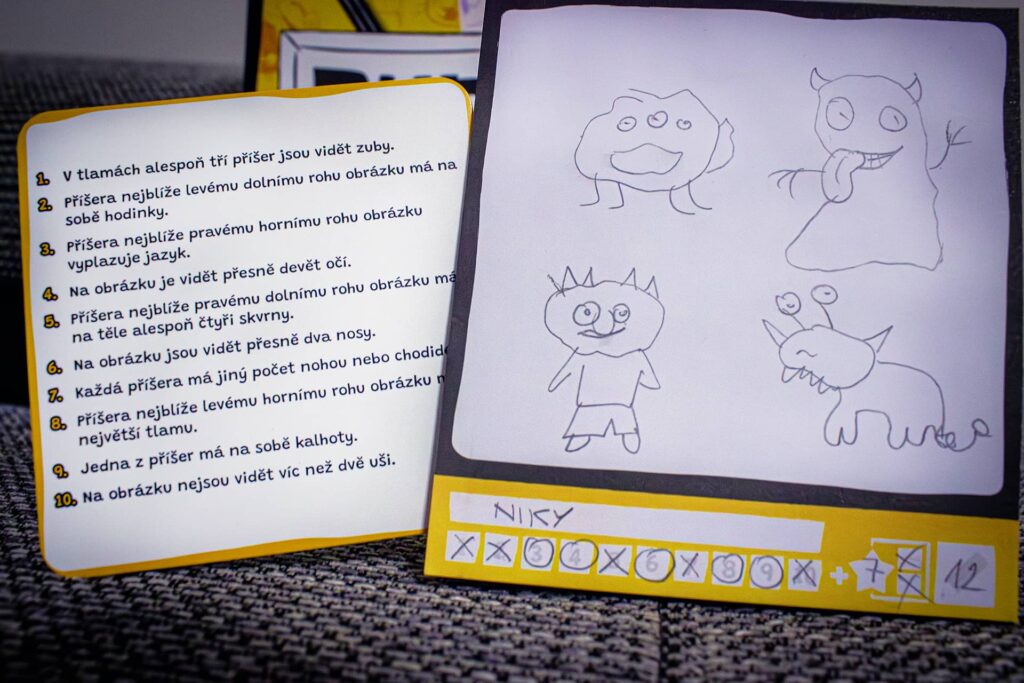 1. V tlamách alespoň tří příšer jsou vidět zuby.
2. Příšera nejblíže levému dolnímu rohu obrázku má na
sobě hodinky.
3. Příšera nejblíže pravému hornímu rohu obrázku
vyplazuje jazyk.
4. Na obrázku je vidět přesně devět očí.
5. Příšera nejblíže pravému dolnímu rohu obrázku má
na těle alespoň čtyři skvrny.
6. Na obrázku jsou vidět přesně dva nosy.
7. Každá příšera má jiný počet nohou nebo
8. Příšera nejblíže levému hornímu rohu obrázku
největší tlamu.
9. Jedna z příšer má na sobě kalhoty.
10. Na obrázku nejsou vidět víc než dvě uši.
NIKY
3 4 6 8 9 10 + 7 12